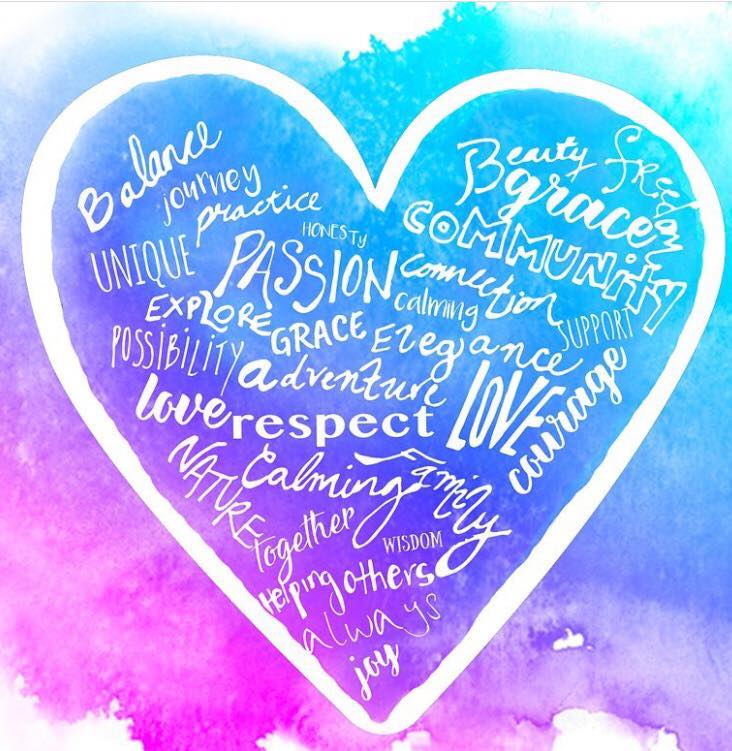 Balance
journey
practice
Beauty
freedom
grace
COMMUNITY
HONESTY
UNIQUE
PASSION
connection
calming
EXPLORE
GRACE
Elegance
SUPPORT
POSSIBILITY
adventure
LOVE
courage
love
respect
NATURE
Calming
Family
together
WISDOM
Helping others
always
joy